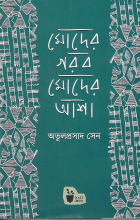 মোদের
গরব
মোদের
আশা
অতুলপ্রসাদ সেন